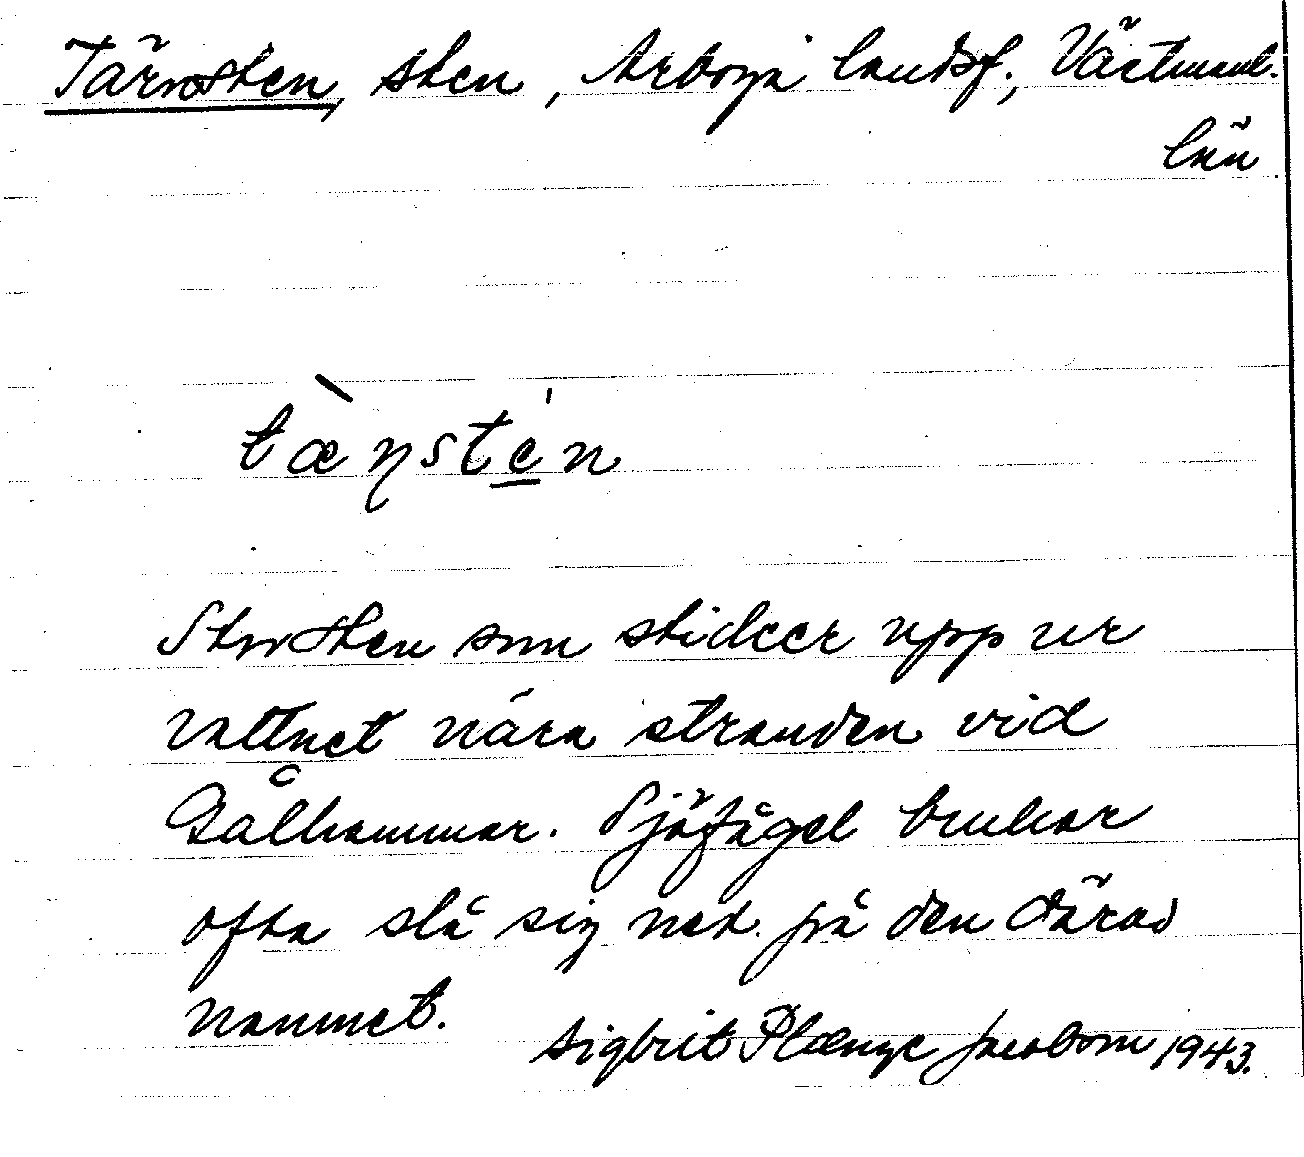 Tärnsten, sten, Arboga landsf., Västmanl.
län
tæ̀ɳsté̠n
Stor sten som sticker upp ur
vattnet nära stranden vid
Gålhammar. Sjöfågel brukar
ofta slå sig ned på den därav
namnet.
Sigbrit Plænge Jacobson 1943.